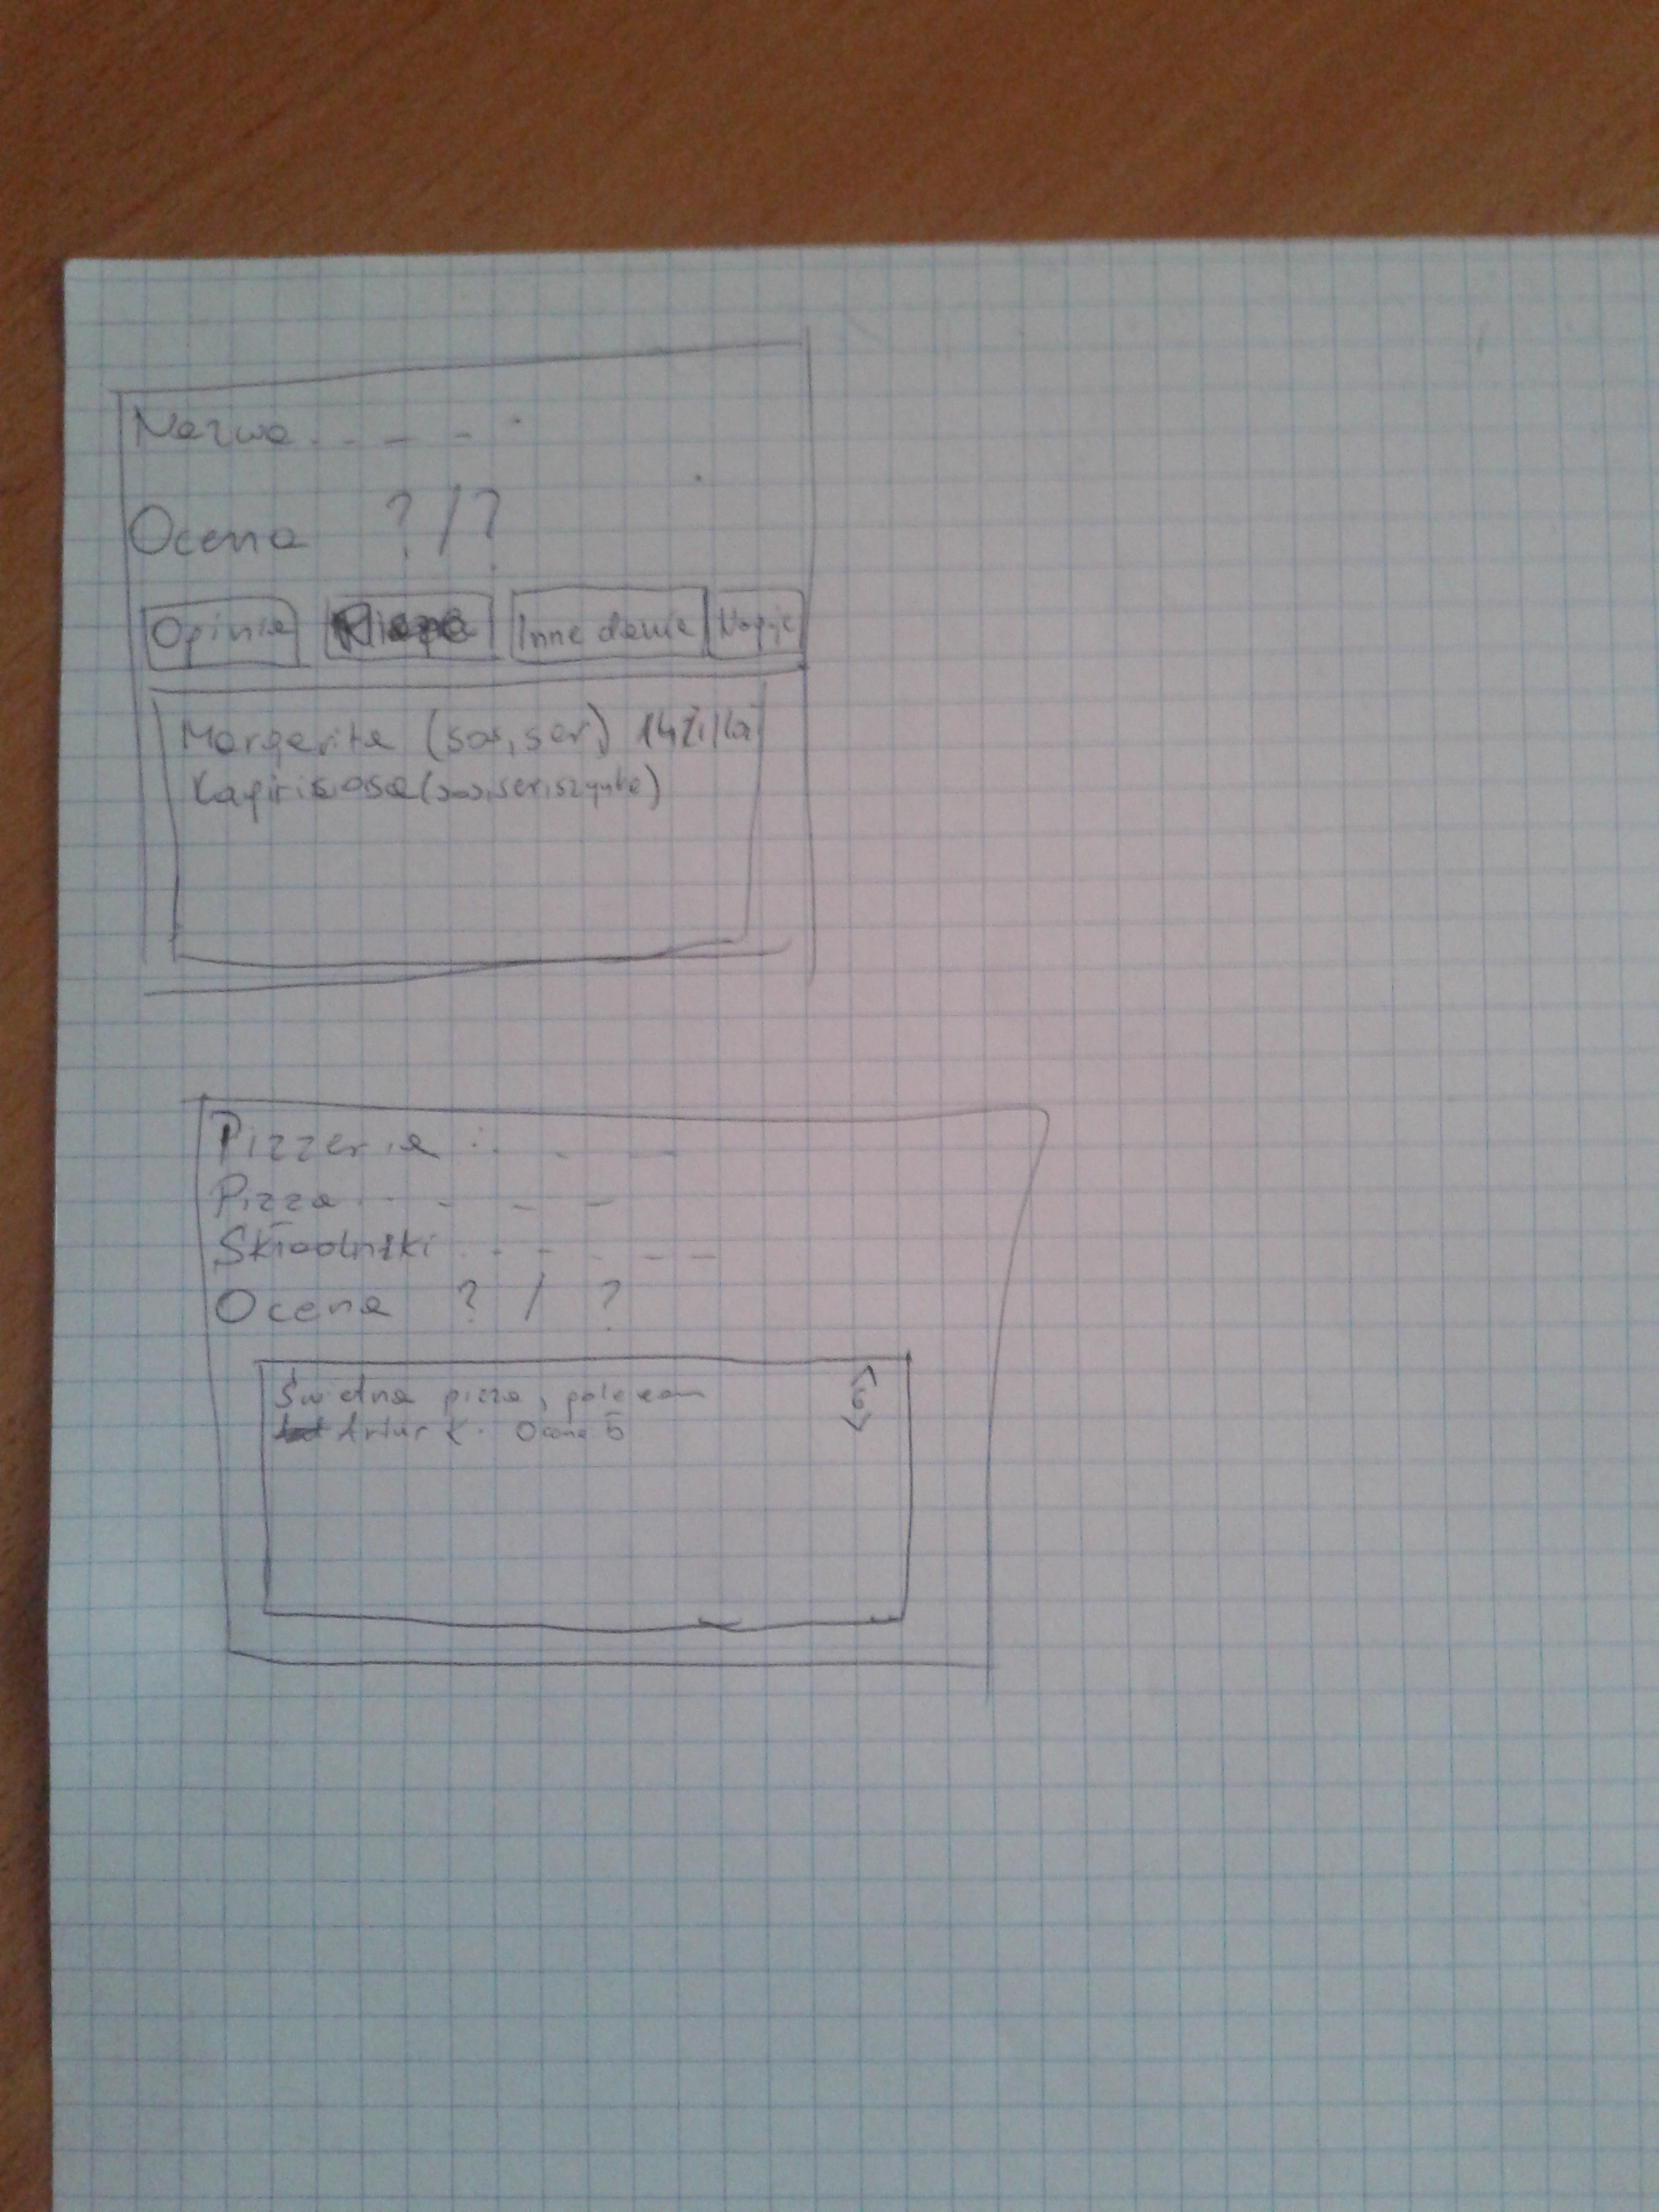 Nazwa . - - - -
Ocena ? / ?
Opinie Pizze Inne danie Napje
Margerita (sos, ser) 14zł
(sos, ser, szynka)
Pizzeria : . - -
Pizza . - - - -
Składniki . . - - - -
Ocena ? / ?
Świetna pizza, polecam
Artur K. Ocena 5
6